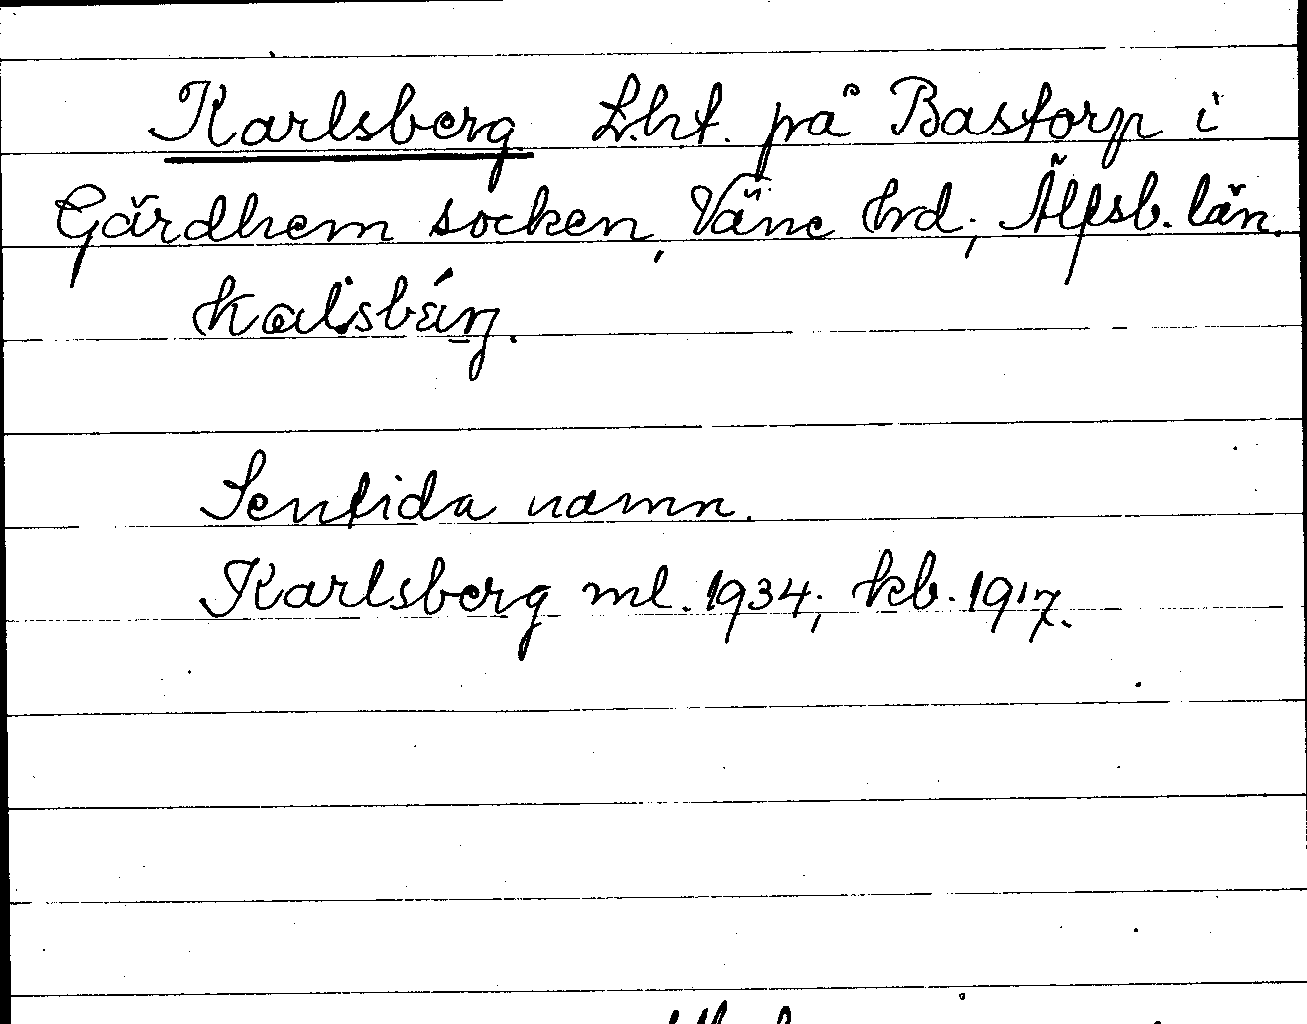 Karlsberg L.ht. på Bastorp i
Gärdhem socken, Väne hrd, Älfsb. län.
kalsbärg.
Sentida namn.
Karlsberg ml. 1934; kb. 1917.